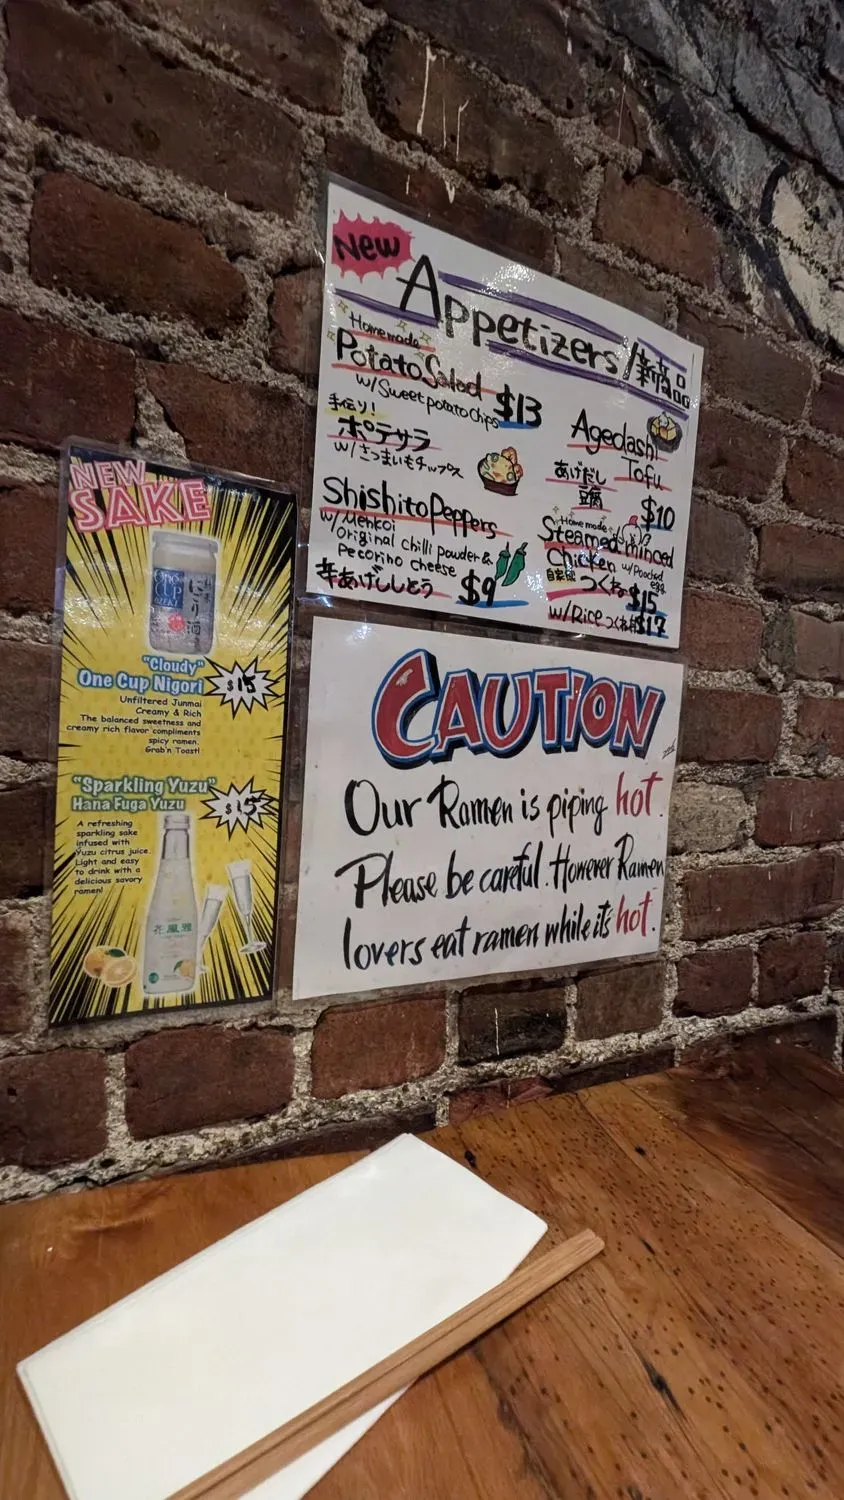 New
Appetizers/新商品
Homemade
Potato Salad
w/Sweet potato chips $13
手作り!
ポテサラ
w/さつまいもチップス
Shishito Peppers
w/Menkoi
Original chilli powder &
Pecorino cheese
辛あげししとう $9
Agedashi
Tofu
あげだし
豆腐
$10
Homemade
Steamed minced
Chicken w/Poached
egg
自家製
つくね $15
w/Rice つくね丼 $17
NEW
SAKE
ONE
CUP
OZEKI
にごり酒
"Cloudy"
One Cup Nigori
$15
Unfiltered Junmai
Creamy & Rich
The balanced sweetness and
creamy rich flavor compliments
spicy ramen.
Grab'n Toast!
"Sparkling Yuzu"
Hana Fuga Yuzu
$15
A refreshing
sparkling sake
infused with
Yuzu citrus juice.
Light and easy
to drink with a
delicious savory
ramen!
花風雅
CAUTION
Our Ramen is piping hot.
Please be careful. However Ramen
lovers eat ramen while it's hot.